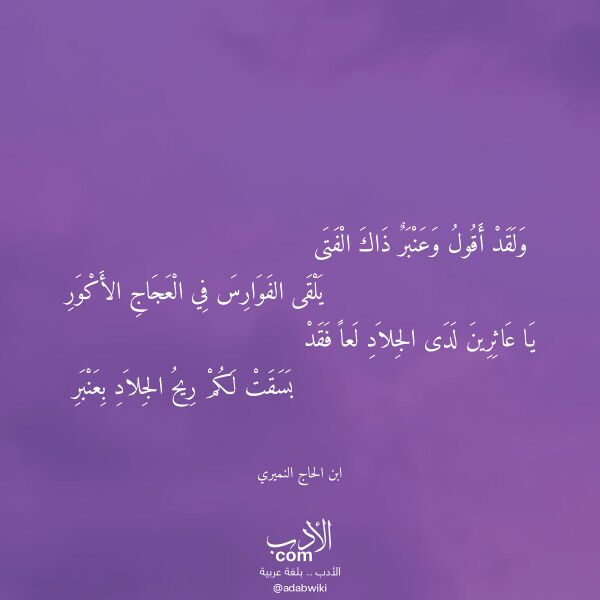 وَلَقَدْ أَقُولُ وَعَنْبَرٌ ذَاكَ الْفَتَى
يَلْقَى الفَوَارِسَ فِي الْعَجَاجِ الأَكْوَرِ
يَا عَاثِرِينَ لَدَى الجِلاَدِ لَعاً فَقَدْ
بَسَقَتْ لَكُمْ رِيحُ الجِلاَدِ بِعَنْبَرِ
ابن الحاج النميري
الأدب
com
الأدب .. بلغة عربية
@adabwiki